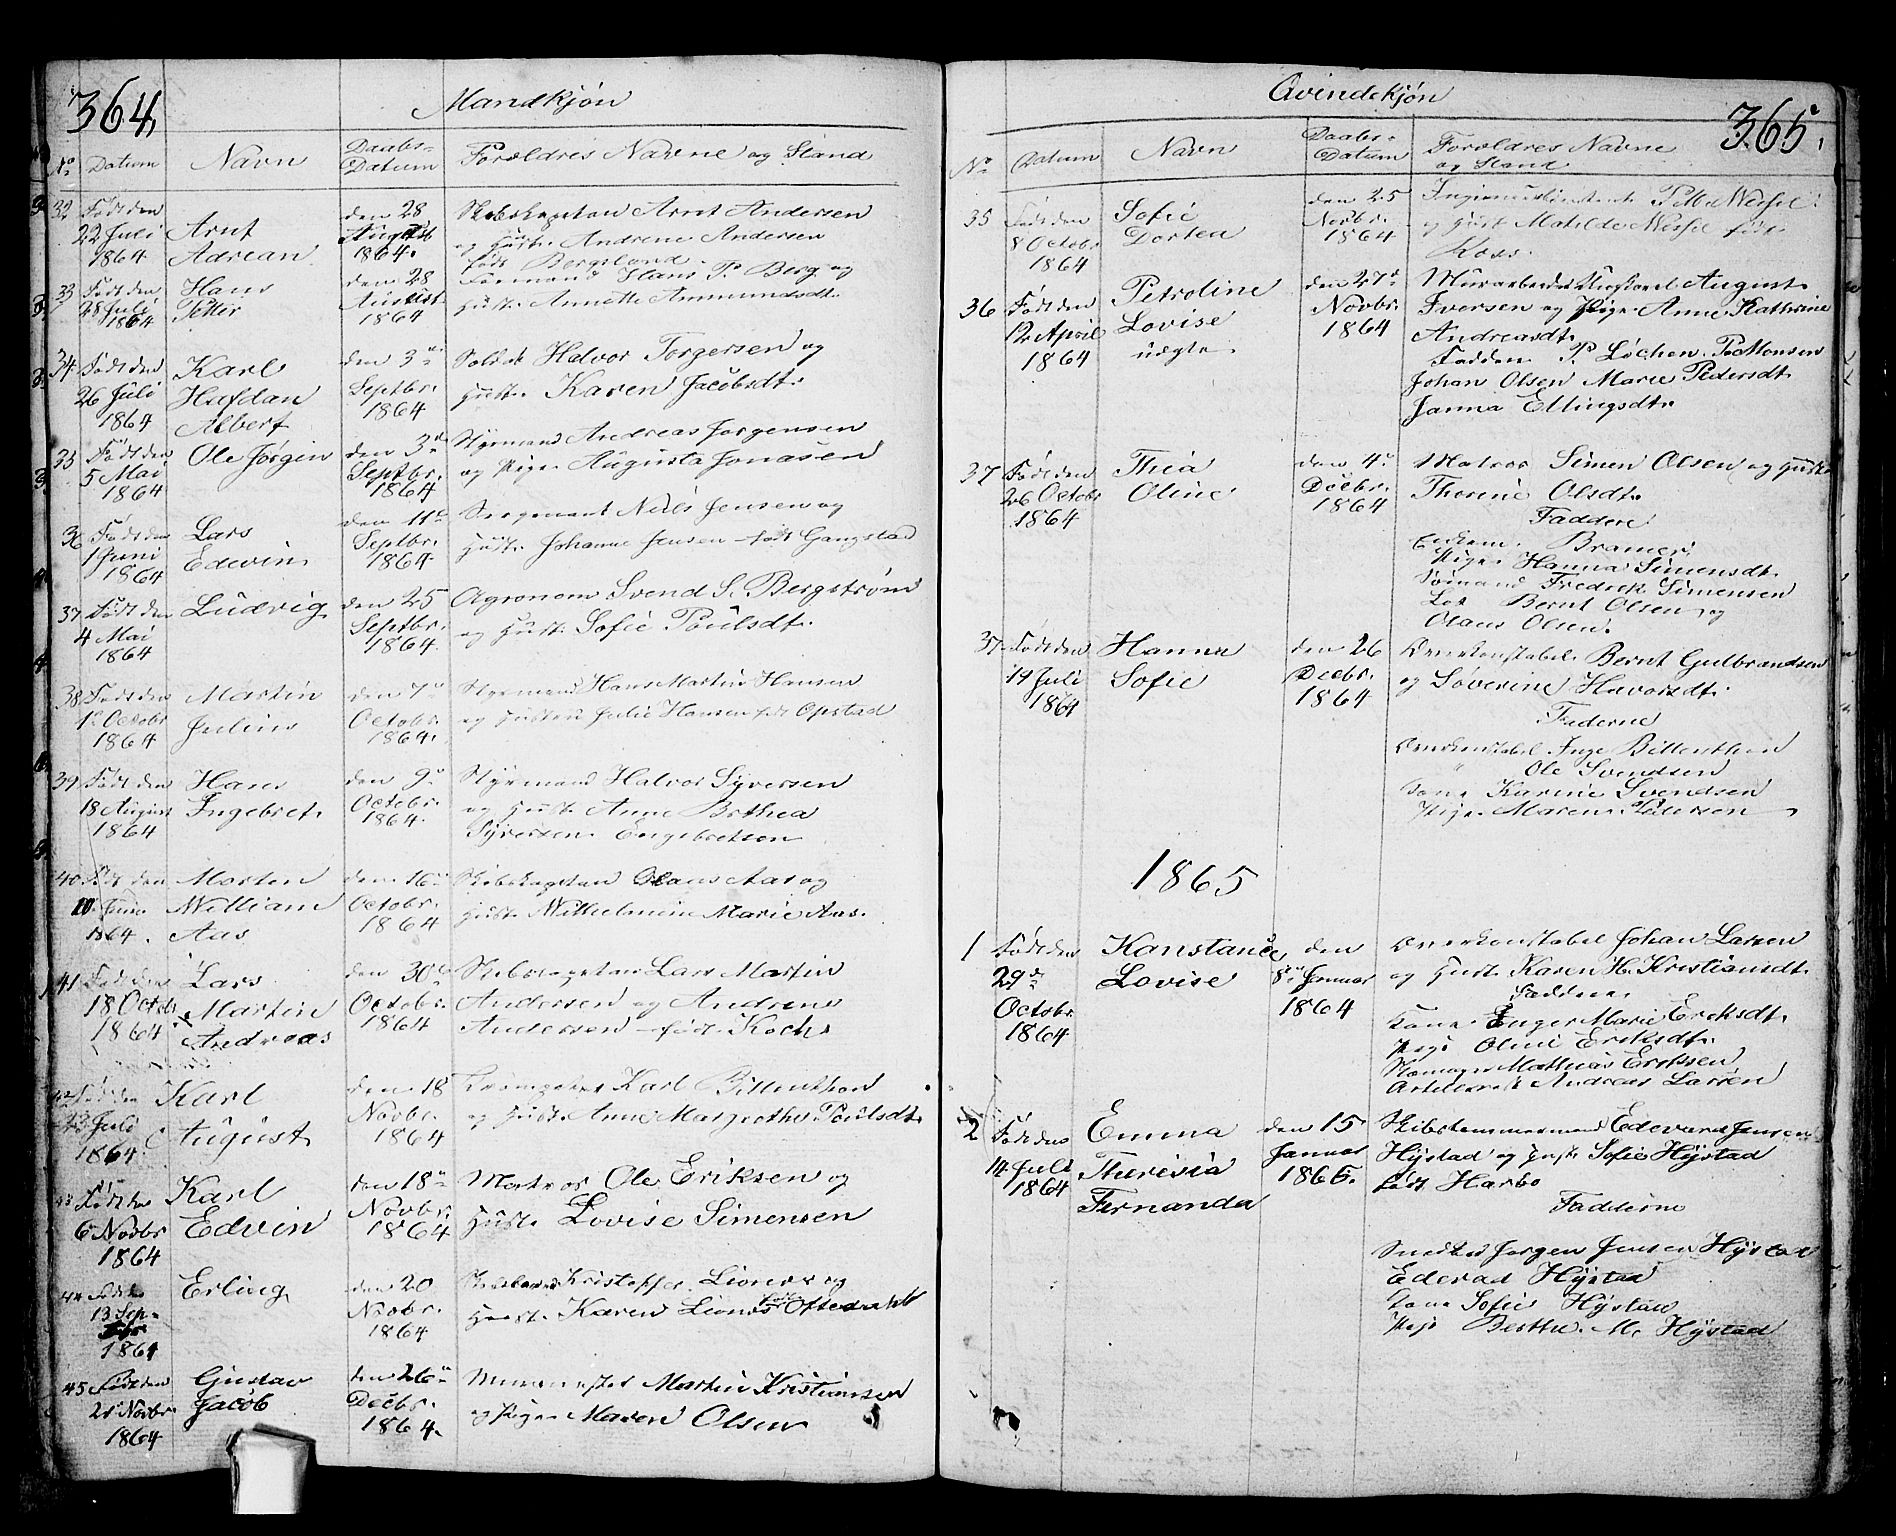 364
Mandkjøn
No
Datum
Navn
Daabs-
Datum
Forældres Navne og Stand
32
Født den
22 Juli
1864
Arnt
Adrean
den 28
August
1864.
Skibskaptan Arnt Andersen
og Hust. Andrene Andersen
født Bergsland
33
Født den
28 Juli
1864
Hans
Petter
den 28
August
1864
Formand Hans P. Berg og
Hust. Annette Ammundsdt.
34
Født den
26 Juli
1864
Karl
Halfdan
Albert
den 3
Septbr.
1864
Soldat Halvor Torgersen og
Hust. Karen Jacobsdt.
35
Født den
5 Mai
1864
Ole Jørgin
den 3
Septbr.
1864
Styrmand Andreas Jørgensen
og Pige Augusta Jonasen
36
Født den
1 Juni
1864
Lars
Edevin
den 11
Septbr.
1864
Niels Jensen og
Hust. Johanne Jensen født Gangstad
37
Født den
4 Mai
1864
Ludvig
den 25
Septbr.
1864
Agronom Svend S. Bergstrøm
og Hust. Sofie Poulsdt.
38
Født den
1 Octobr
1864
Martin
Julius
den 7
Octobr.
1864.
Styrmand Hans Martin Hansen
og Hustru Julie Hansen født Opstad
39
Født den
18 August
1864
Hans
Ingebret.
den 9
Octobr.
1864.
Styrmand Halvor Syversen
og Hust. Anne Berthea
Syversen Engebretsen
40
Født den
10
1864.
Morten
William
Aas
den 16
Octobr.
1864
Skibskaptan Claus Aas og
Hust. Wilhelmine Marie Aas.
41
Født den
18 Octobr
1864
Lars
Martin
Andreas
den 30
Octobr.
1864
Skibskaptan Lars Martin
Andersen og Andrene
Andersen født Koch
42
Født den
Juli
1864.
Karl
August
den 18
Novbr.
1864
Karl Billenthon
og Hust. Anne Margrethe Poulsdt.
43
Født den
6 Novbr
1864
Karl
Edvin
den 18
Novbr.
1864
Matros Ole Eriksen og
Hust. Lovise Simensen
44
Født den
13 Sep-
1864
Erling
den 20
Novbr.
1864
Kristoffer Lionæs og
Hust. Karen Lionæs født Oftedahl
45
Født den
21 Novbr.
1864
Gustav
Jacob
den 26
Decbr.
1864.
Martin Kristiansen
og Pige Maren Olsen
Qvindekjøn
365.
No
Datum
Navn
Daabs-
Datum
Forældres Navne
og Stand
35
Født den
8 Octobr
1864
Sofie
Dortea
den 25
Novbr.
1864
Wessel
og Hust Matilde Wessel født
Koss.
36
Født den
12 April
1864
Petroline
Lovise
uægte.
den 27
Novbr.
1864
Murarbeder August
Iversen og Pige Anne Kathrine
Andreasdt.
Fadden P. Løchen. P. Monsen
Johan Olsen Marie Pedersdt.
Janna Ellingsdt.
37
Født den
26 Octobr
1864
Thea
Oline
den 4
Decbr.
1864
Matros Simen Olsen og Hust.
Thorine Olsdt.
Faddere
Enkem. Bramer
Pige Hanna Simensdt.
Sømand Fredrik Simensen
Los Bernt Olsen og
Olaus Olsen.
37
Født den
14 Juli
1864
Hanna
Sofie
den 26
Decbr.
1864
Overkonstabel Bernt Gulbrandsen
og Soverine Havorsdt.
Faderne
Overkonstabel Inge Billenthon
" Ole Svendsen
Kone Karine Svendsen
Pige Maren Pedersen
1865
1
Født den
29
Octobr.
1864
Konstance
Lovise
den
8 Januar
1864
Overkonstabel Johan Larsen
og Hust Karen H. Kristiansdt.
Faddere
Kone Enger Marie Eriksdt.
Pige Oline Eriksdt.
Mathias Eriksen
Andreas Larsen
2
Født den
14 Juli
1864
Emma
Theresia
Fernanda
den 15
Januar
1865.
Skibstømmermand Edevard Jensen
Hystad og Hust Sofie Hystad
født Harbo
Fadderne
Smed Jørgen Jensen Hystad
Edevad Hystad
Kone Sofie Hystad
Pige Berthe. M. Hystad